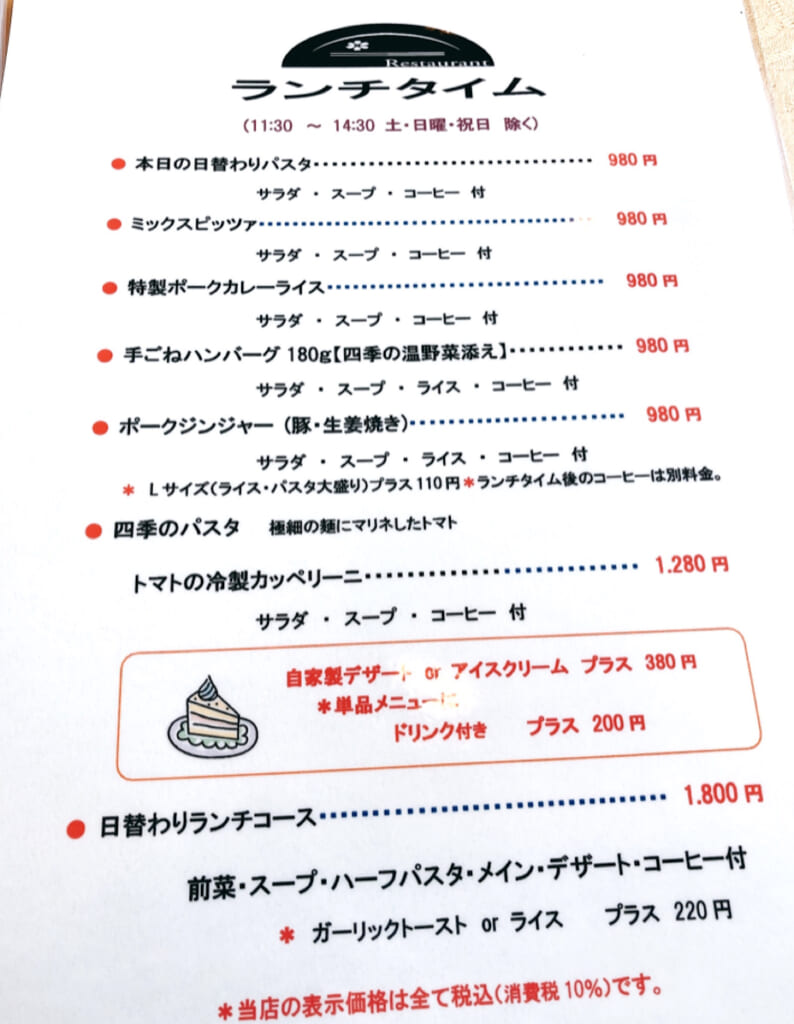 Restaurant
ランチタイム
(11:30 ～ 14:30 土・日曜・祝日 除く)
● 本日の日替わりパスタ・・・・・・・・・・・・・・・・・・・・・・・・・・・・ 980円
サラダ ・ スープ ・ コーヒー 付
● ミックスピッツァ・・・・・・・・・・・・・・・・・・・・・・・・・・・・・・・・ 980円
サラダ ・ スープ ・ コーヒー 付
● 特製ポークカレーライス・・・・・・・・・・・・・・・・・・・・・・・・・・ 980円
サラダ ・ スープ ・ コーヒー 付
● 手ごねハンバーグ 180g【四季の温野菜添え】・・・・・・・・・・・ 980円
サラダ ・ スープ ・ ライス ・ コーヒー 付
● ポークジンジャー (豚・生姜焼き)・・・・・・・・・・・・・・・・・・・・ 980円
サラダ ・ スープ ・ ライス ・ コーヒー 付
＊ Lサイズ(ライス・パスタ大盛り)プラス110円＊ランチタイム後のコーヒーは別料金。
● 四季のパスタ 極細の麺にマリネしたトマト
トマトの冷製カッペリーニ・・・・・・・・・・・・・・・・・・・・・・・・ 1.280円
サラダ ・ スープ ・ コーヒー 付
自家製デザート or アイスクリーム プラス 380円
＊単品メニューに
ドリンク付き プラス 200円
● 日替わりランチコース・・・・・・・・・・・・・・・・・・・・・・・・・・・・ 1.800円
前菜・スープ・ハーフパスタ・メイン・デザート・コーヒー付
＊ ガーリックトースト or ライス プラス 220円
＊当店の表示価格は全て税込(消費税10%)です。